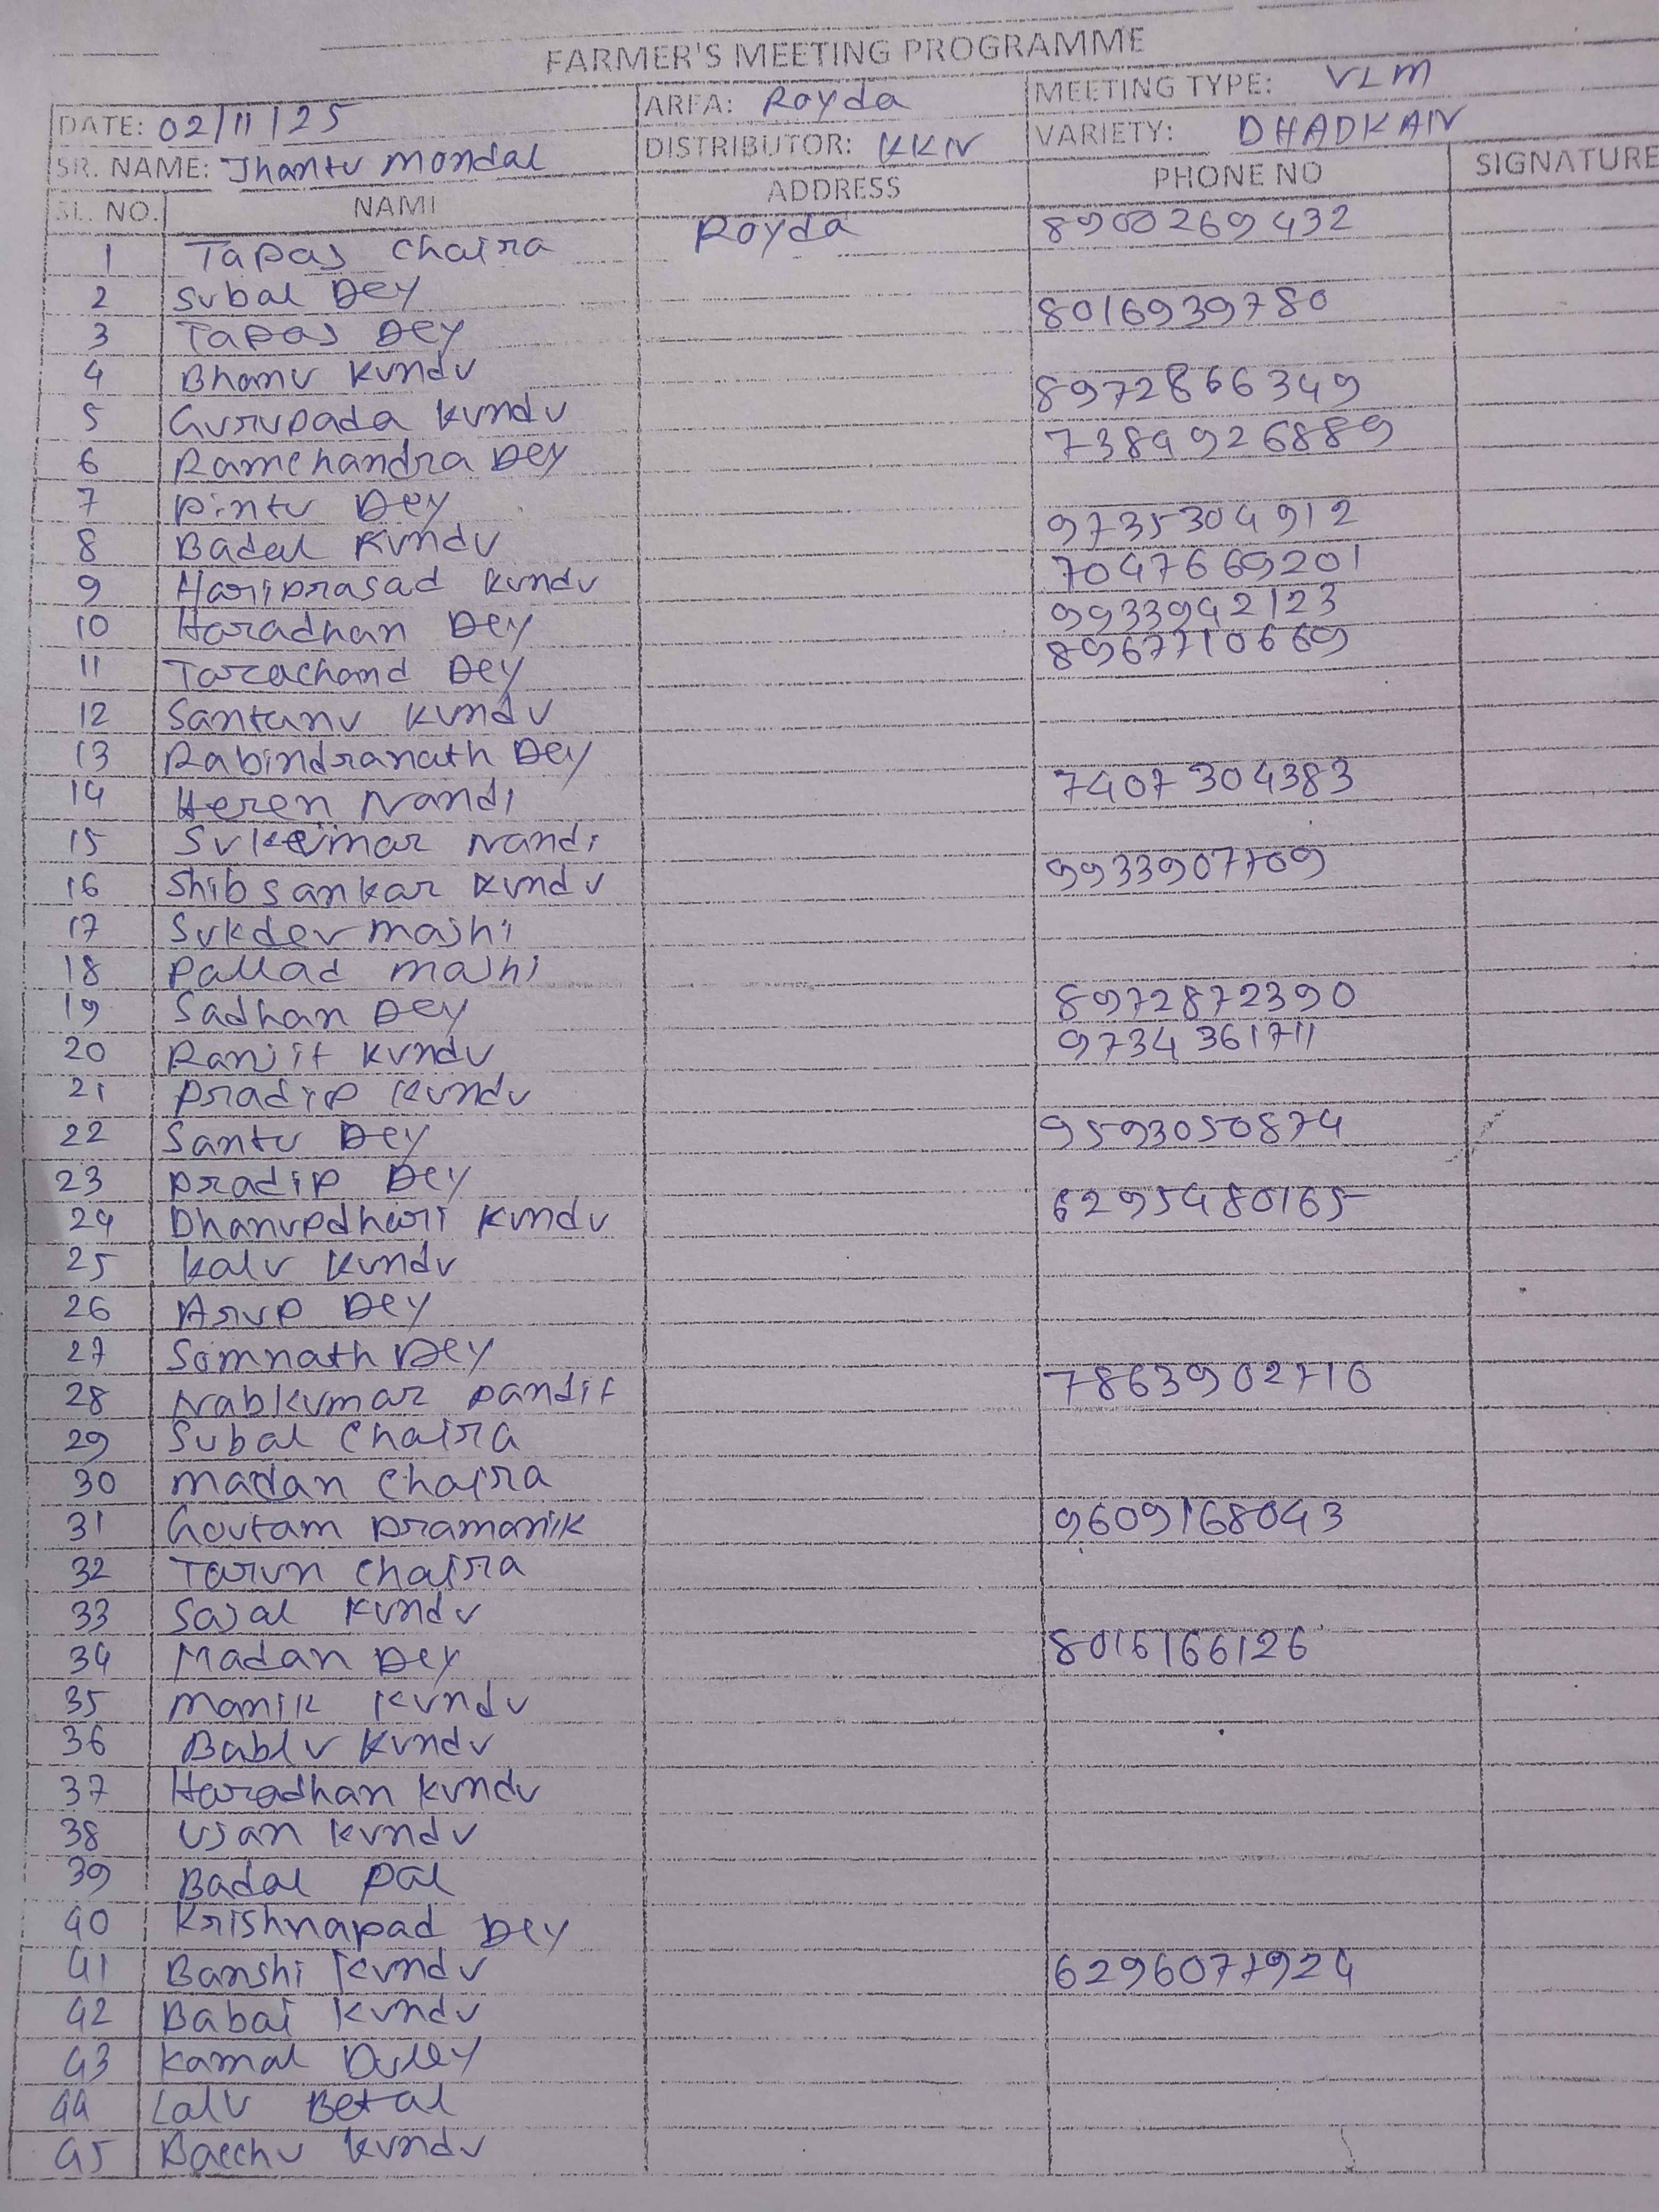 FARMER'S MEETING PROGRAMME
DATE: 02/11/25 AREA: Royda MEETING TYPE: VLM
SR. NAME: Jhantu Mondal DISTRIBUTOR: KKN VARIETY: DHADKAN
SL. NO. NAME ADDRESS PHONE NO SIGNATURE
1 Tapas Chalra Royda 8900269432
2 Subal Dey
3 Tapas Dey 8016939780
4 Bhanu Kundu
5 Gurupada Kundu 8972866349
6 Ramchandra Dey 7389926889
7 Pintu Dey
8 Badal Kundu 9735304912
9 Hariprasad Kundu 7047669201
10 Haradhan Dey 9933942123
11 Tarachand Dey 8967710669
12 Santanu Kundu
13 Rabindranath Dey
14 Heren Nandi 7407304383
15 Sukumar Nandi
16 Shibsankar Kundu 9933907709
17 Sukdev Majhi
18 Pallad Majhi
19 Sadhan Dey 8972872390
20 Ranjit Kundu 9734361711
21 Pradip Kundu
22 Santu Dey 9593050874
23 Pradip Dey
24 Dhanupdhari Kundu 6295480165
25 Kalu Kundu
26 Arup Dey
27 Somnath Dey
28 Nabkumar Pandit 7863902710
29 Subal Chalra
30 Madan Chalra
31 Goutam Pramanik 9609168043
32 Tarun Chalra
33 Sajal Kundu
34 Madan Dey 8016166126
35 Manik Kundu
36 Bablu Kundu
37 Haradhan Kundu
38 Ujan Kundu
39 Badal Pal
40 Krishnapad Dey
41 Banshi Kundu 6296077924
42 Babai Kundu
43 Kamal Duley
44 Lalu Betal
45 Bacchu Kundu